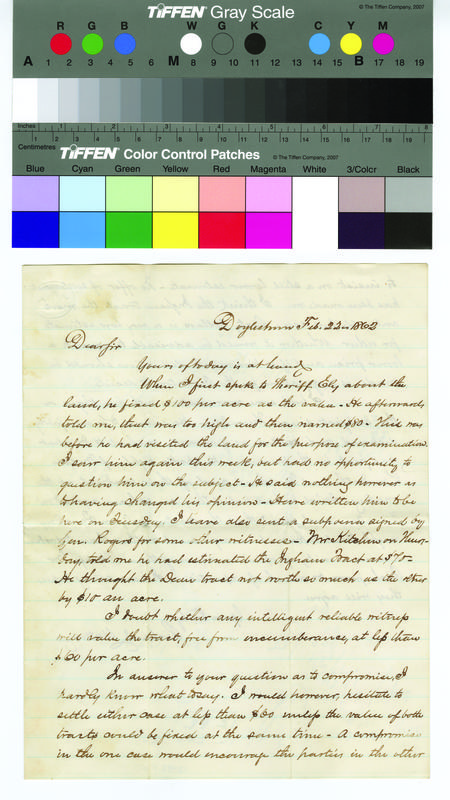 TIFFEN Gray Scale
© The Tiffen Company, 2007
R G B W G K C Y M
A 1 2 3 4 5 6 M 8 9 10 11 12 13 14 15 B 17 18 19
Inches 1 2 3 4 5 6 7 8
Centimetres 1 2 3 4 5 6 7 8 9 10 11 12 13 14 15 16 17 18 19
TIFFEN Color Control Patches © The Tiffen Company, 2007
Blue Cyan Green Yellow Red Magenta White 3/Color Black
Doylestown Feb. 22 1862
Dear sir
Yours of today is at hand
When I first spoke to Sheriff Ely about the
land, he fixed $100 per acre as the value - He afterwards
told me, that was too high and then named $80 - This was
before he had visited the land for the purpose of examination.
I saw him again this week, but had no opportunity to
question him on the subject - He said nothing however as
to having changed his opinion - Have written him to be
here on Tuesday. I have also sent a subpoena signed by
Rogers for some other witnesses - Wm Kitchen on Thurs-
day, told me he had estimated the Ingham Tract at $70 -
He thought the Dean tract not worth so much as the other
by $10 an acre.
I doubt whether any intelligent reliable witness
will value the tract, free from encumberance, at less than
$60 per acre.
In answer to your question as to compromise, I
hardly know what to say. I would however, hesitate to
settle either case at less than $80 unless the value of both
tracts could be fixed at the same time - A compromise
in the one case would encourage the parties in the other